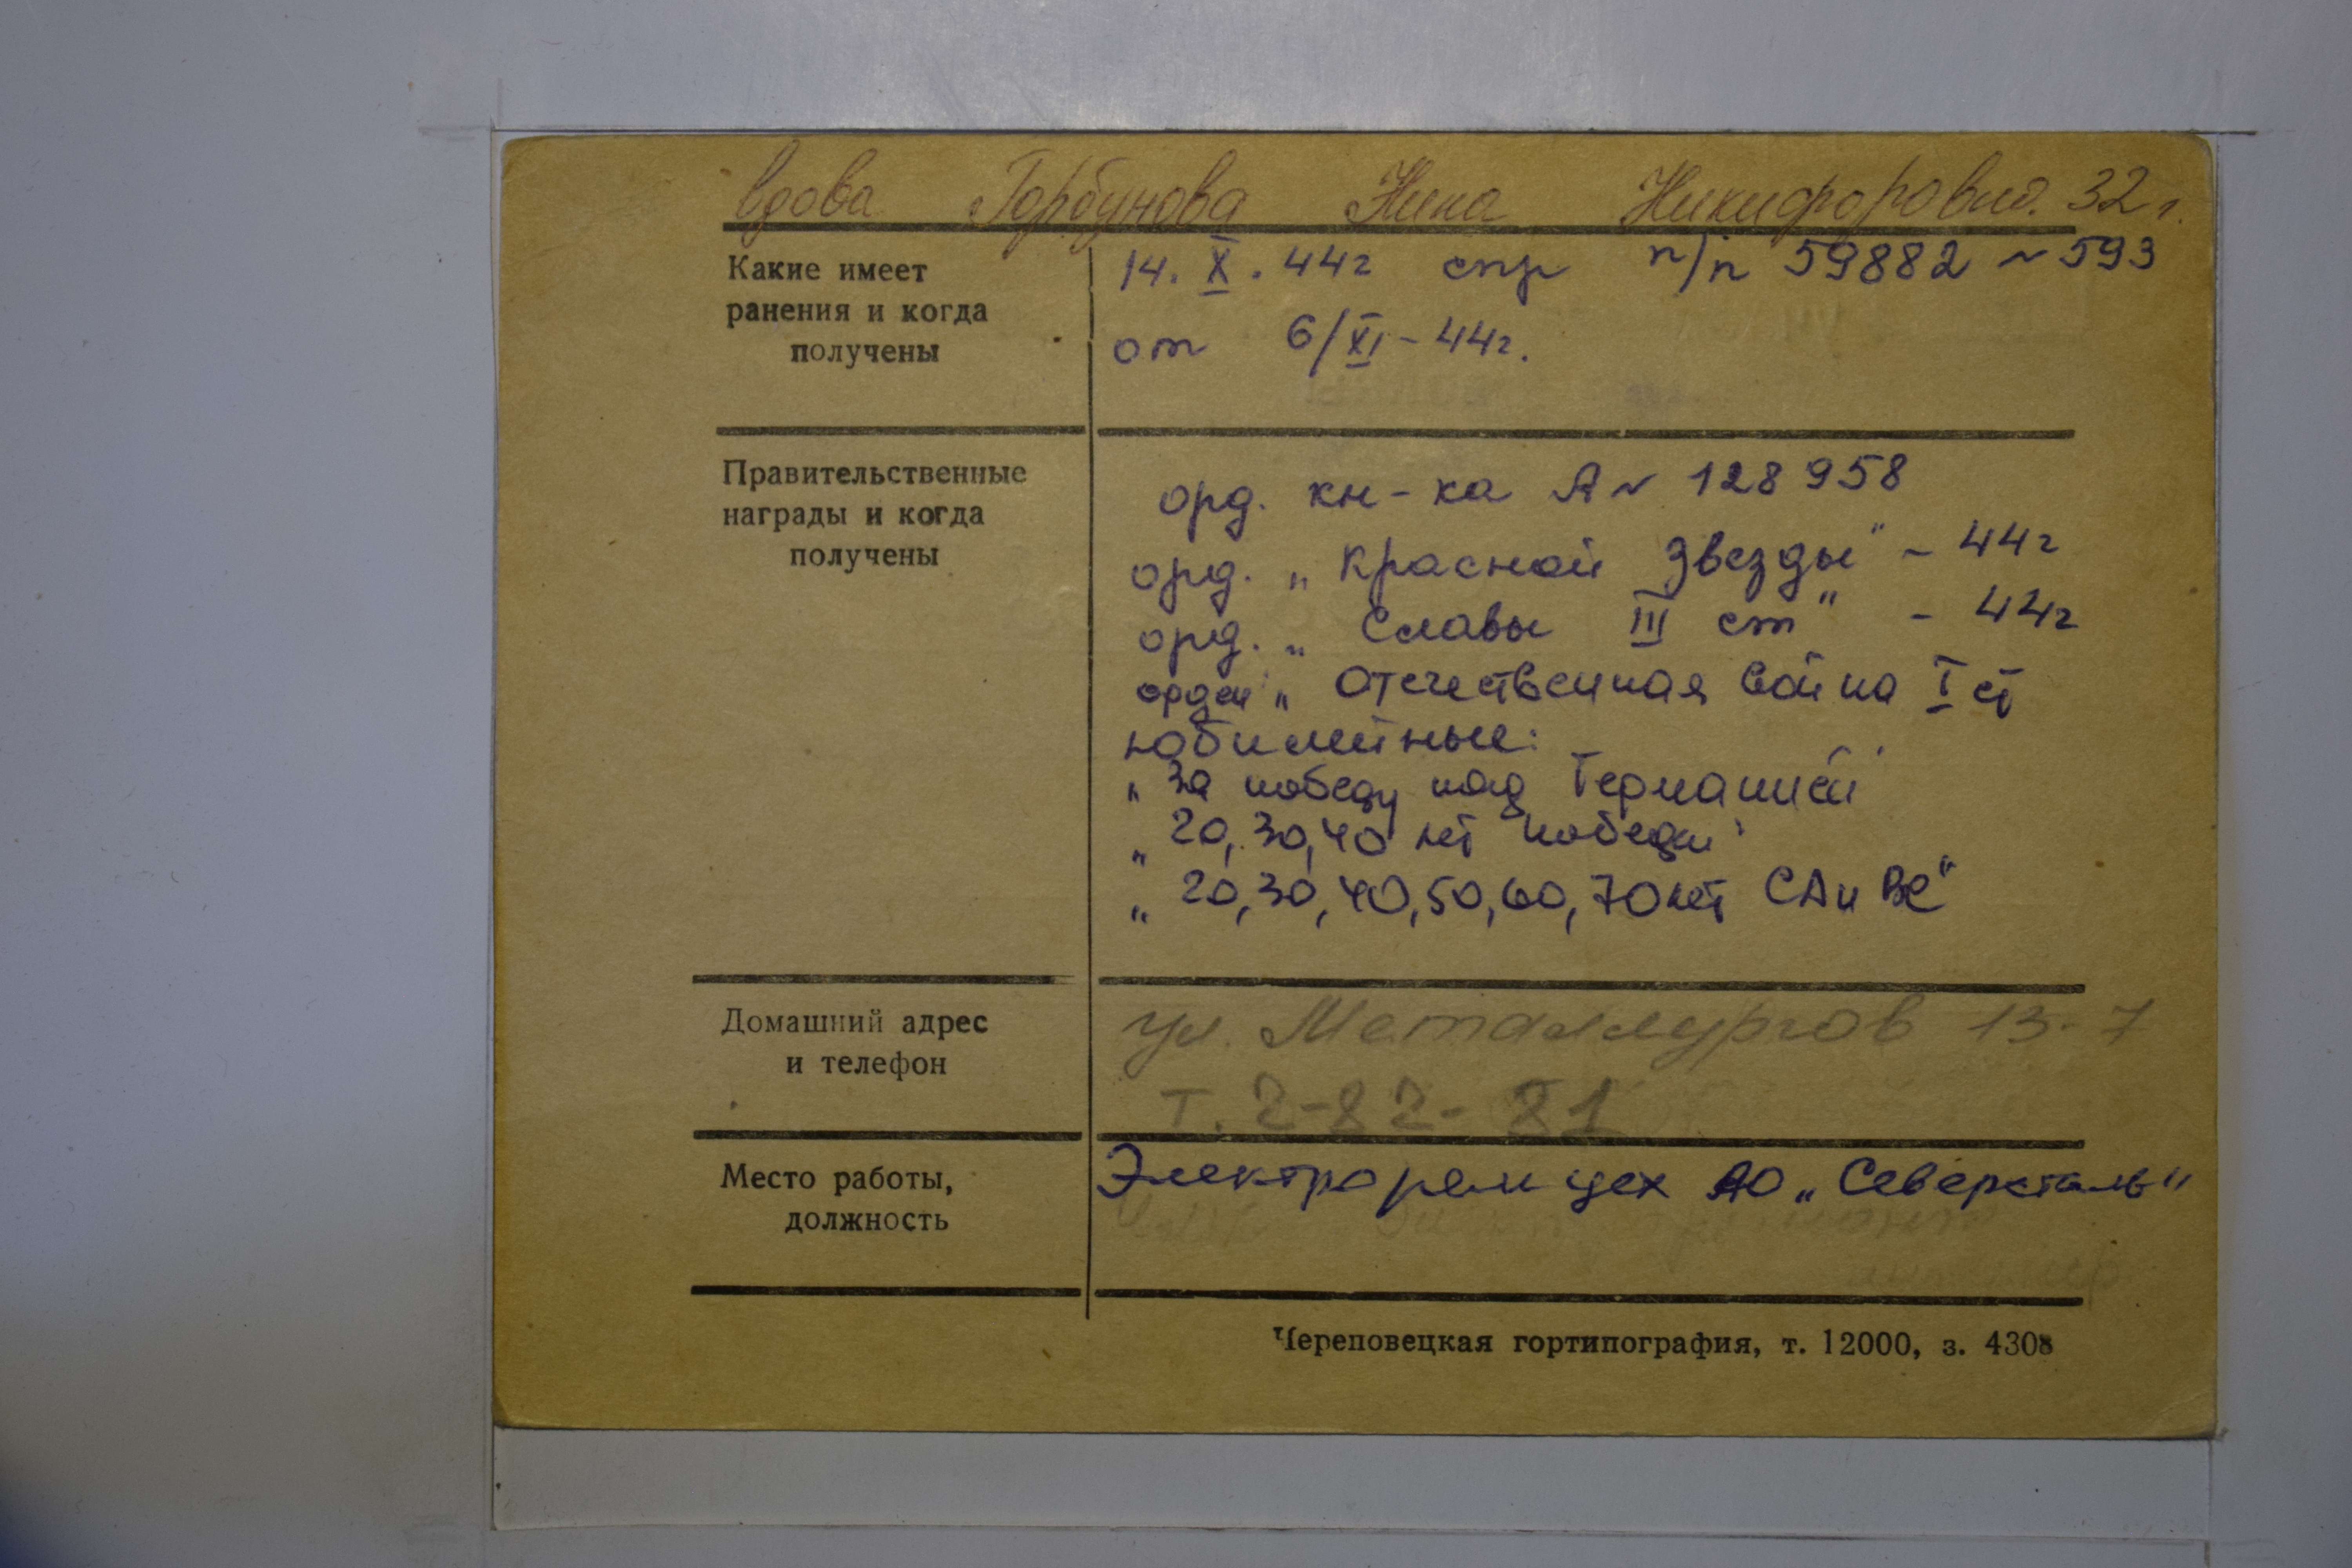 вдова Горбунова Нина Никифоровна. 32 г.
Какие имеет ранения и когда получены
14. X. 44г спр п/п 59882 ~ 593
от 6/XI - 44г.
Правительственные награды и когда получены
орд. кн-ка А~ 128958
орд. „Красной Звезды" - 44г
орд. „Славы III ст" - 44г
орден „Отечественная война I ст
юбилейные:
„За победу над Германией"
„20, 30, 40 лет победы"
„20, 30, 40, 50, 60, 70 лет СА и ВС"
Домашний адрес и телефон
ул. Металлургов 13-7
т. 2-82-81
Место работы, должность
Электроремцех АО „Северсталь"
Череповецкая гортипография, т. 12000, з. 4308